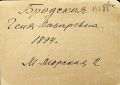 Бродская
Геня Лазаревна
1894.
М-Морская 2